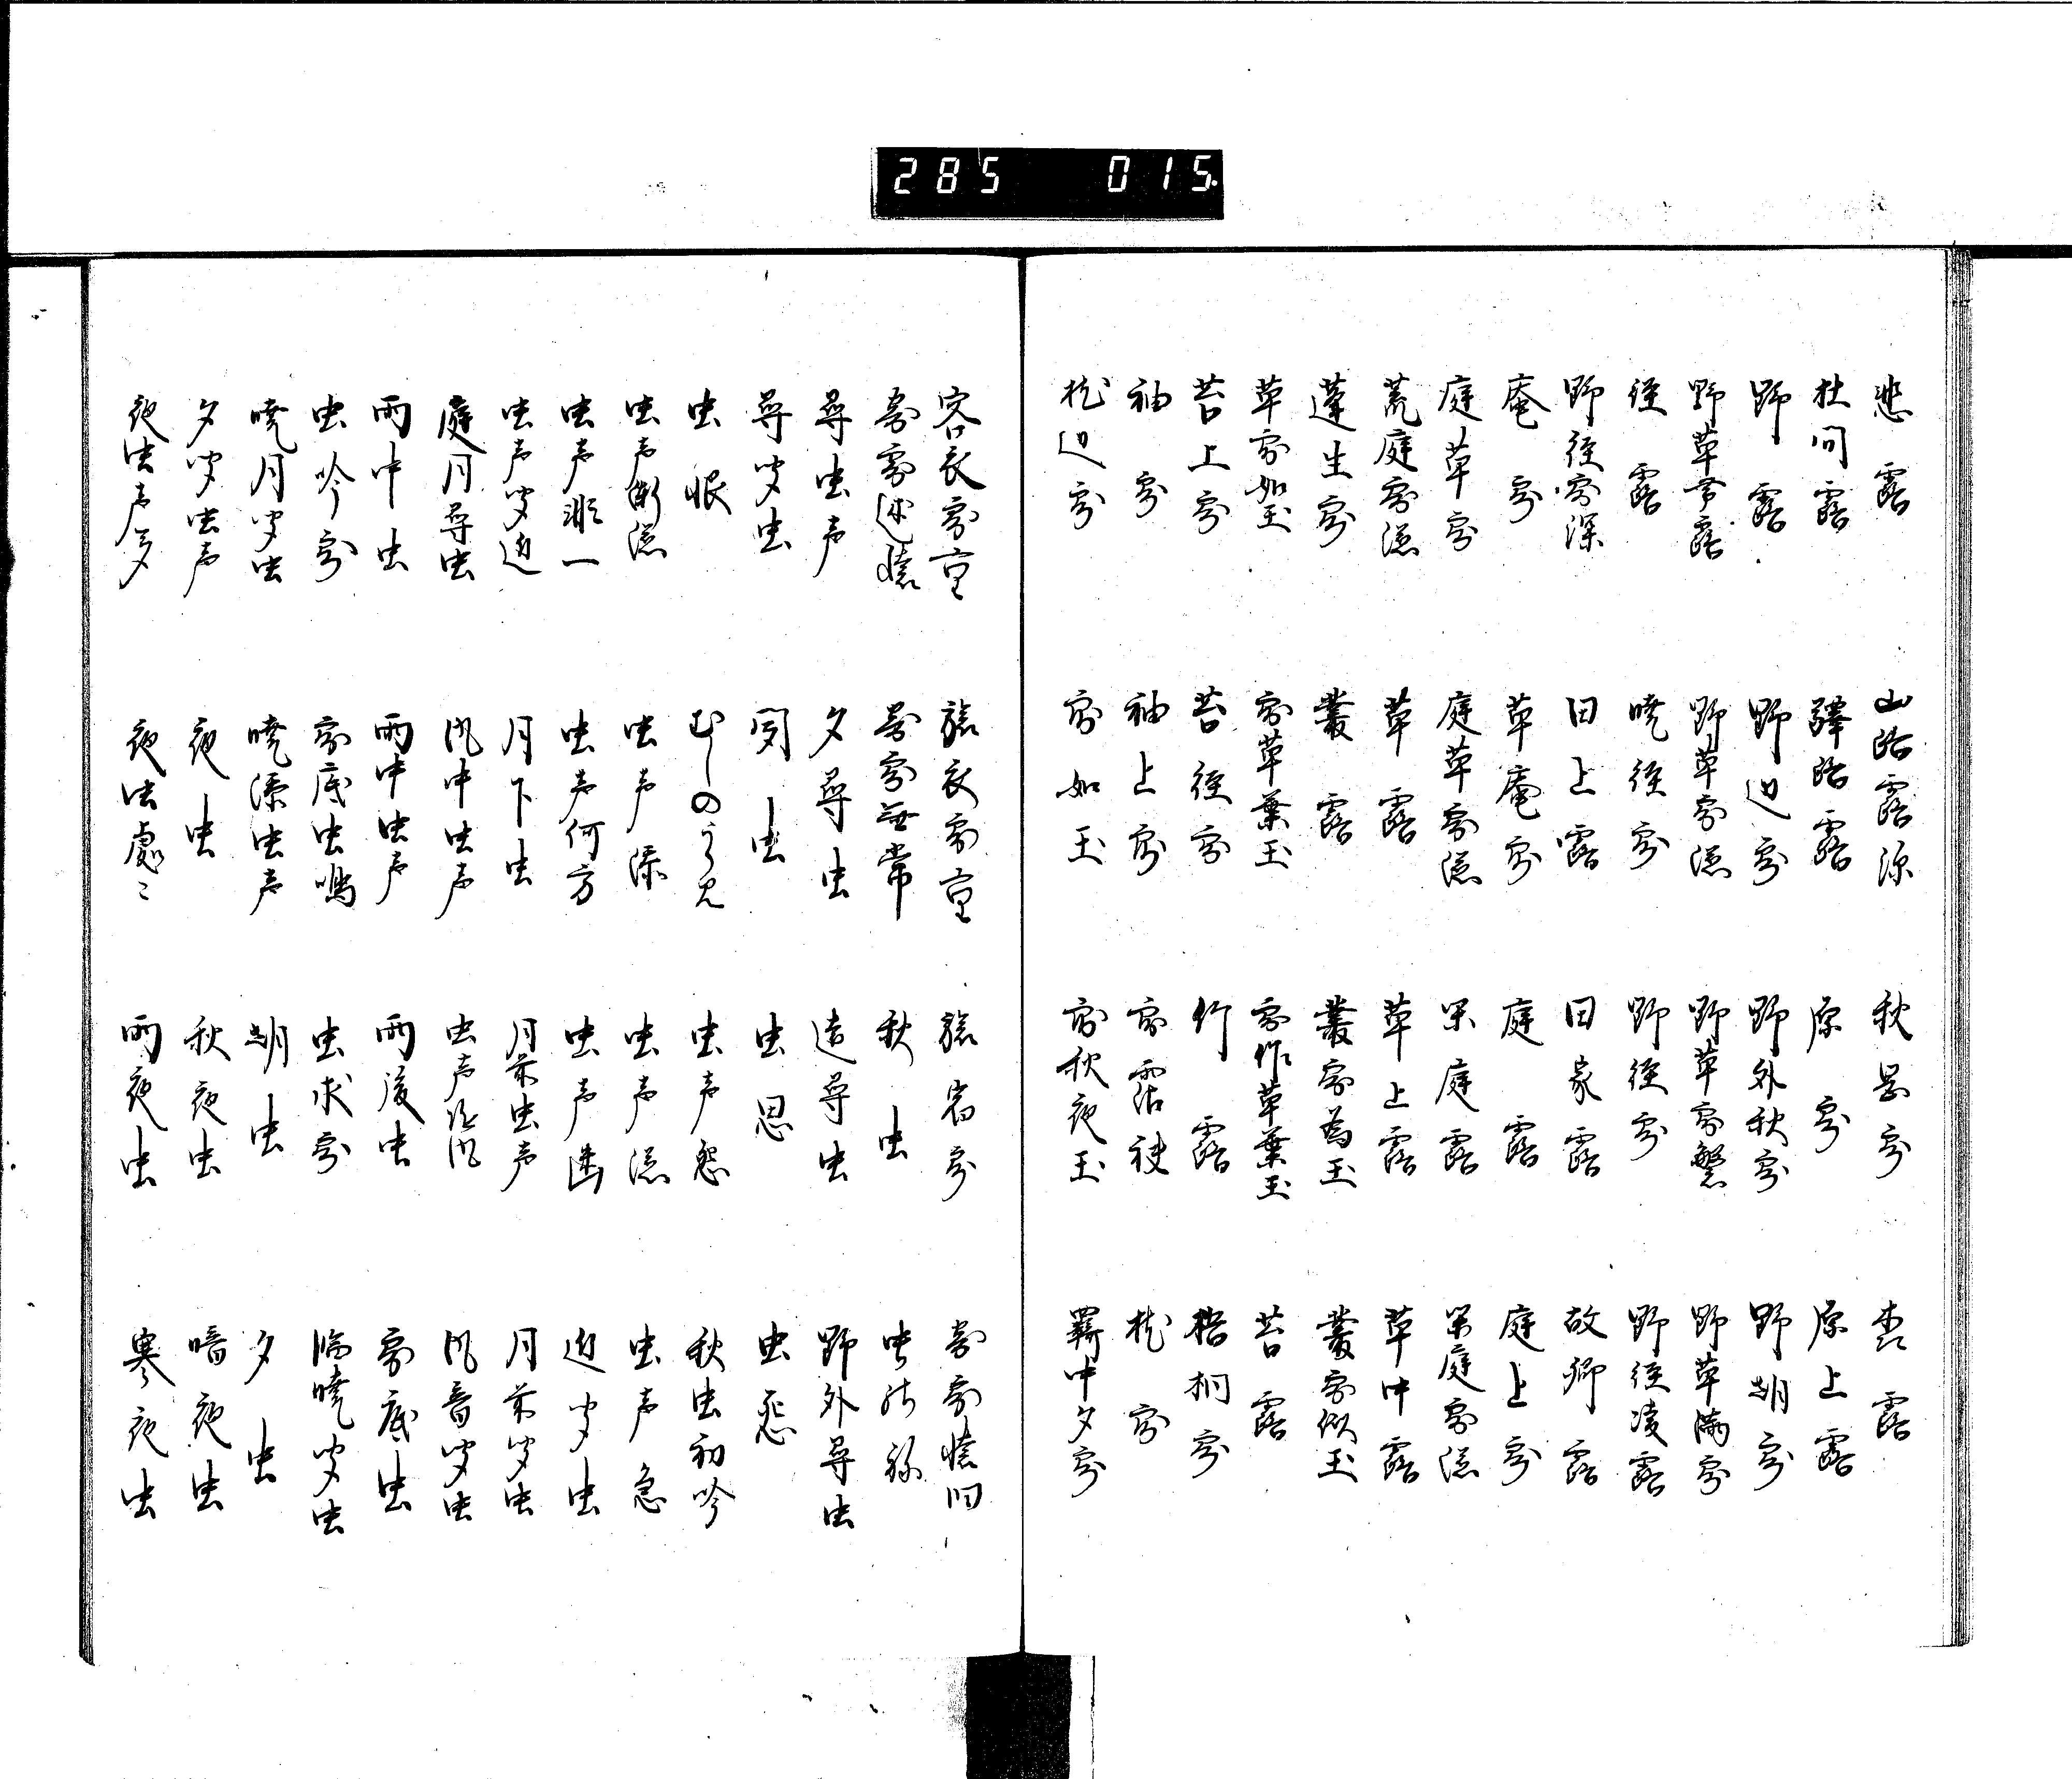 285 015
悲露 山路露深 秋岡露 杜露
杜間露 驛路露 原露 原上露
野露 野辺露 野外秋露 野朝露
野草帯露 野草露滋 野草露繁 野草満露
径露 暁径露 野径露 野径凌露
野径露深 田上露 田家露 故郷露
庵露 草庵露 庭露 庭上露
庭草露 庭草露滋 閑庭露 閑庭露滋
荒庭露滋 草露 草上露 草中露
蓬生露 叢露 叢露為玉 叢露似玉
草露如玉 露草葉玉 露作草葉玉 苔露
苔上露 苔径露 竹露 梧桐露
袖露 袖上露 露霑袂 枕露
枕辺露 露如玉 露秋夜玉 羇中夕露
客衣露重 旅衣露重 旅宿露 寄露懐旧
寄露述懐 寄露無常 秋虫
尋虫声 夕尋虫 遠尋虫 野外尋虫
尋聞虫 聞虫 虫思 虫怨
虫恨 むしのうらみ 虫声怨 秋虫初吟
虫声漸滋 虫声深 虫声滋 虫声急
虫声非一 虫声何方 虫声幽 近聞虫
虫声聞近 月下虫 月前虫声 月前聞虫
庭月尋虫 風中虫声 虫声 風音聞虫
雨中虫 雨中虫声 雨後虫 露底虫
虫吟露 露底虫鳴 虫求露 臨暁聞虫
暁月聞虫 暁深虫声 朝虫 夕虫
夕聞虫声 夜虫 秋夜虫 暗夜虫
夜虫声多 夜虫處〻 雨夜虫 寒夜虫